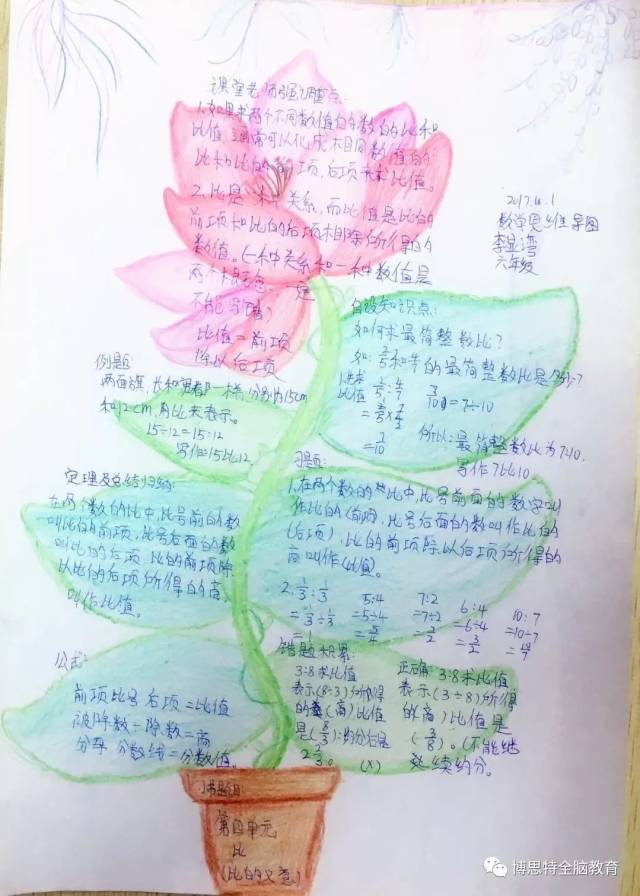 课堂老师强调点:
1.如果求两个不同数值的数的比和
比值,通常可以化成相同数值的
比和比的前项,后项来求比值。
2.比是一种关系,而比值是比的
前项和比的后项相除所得的
数值。(一种关系和一种数值是
两个概念一定
不能写错)
比值=前项
除以后项
2017.4.1
数学思维导图
李显湾
六年级
自设知识点:
如何求最简整数比?
如:
的最简整数比是多少?
求
比值
7/10=7÷10
=7/10
所以:最简整数比为7:10.
写作7比10
例题:
两面旗,长和宽都一样,分别为15cm
和12cm,用比来表示。
15÷12=15:12
写作15比12.
定理及总结归纳:
在两个数的比中,比号前的数
叫比的前项,比号后面的数
叫比的后项.比的前项除
以比的后项所得的商,
叫作比值。
习题:
1.在两个数的比中,比号前面的数字叫
作比的(前项),比号后面的数叫作比的
(后项),比的前项除以后项所得的
商叫作(比值)。
2. 1/3:1/3 5:4 7:2 6:4 10:7
=1/3÷1/3 =5÷4 =7÷2 =6÷4 =10÷7
=1 =5/4 =7/2 =3/2 =10/7
公式:
前项比号后项=比值
被除数÷除数=商
分子 分数线=分数值.
错题积累:
3:8求比值
表示(8÷3)所得
的(商)比值
是(8/3):约分后是
2 2/3。 (×)
正确:3:8求比值
表示(3÷8)所得
的(商)比值是
(3/8)。(不能继
续约分。
习题目
第四单元
比
(比的意义)
博思特全脑教育